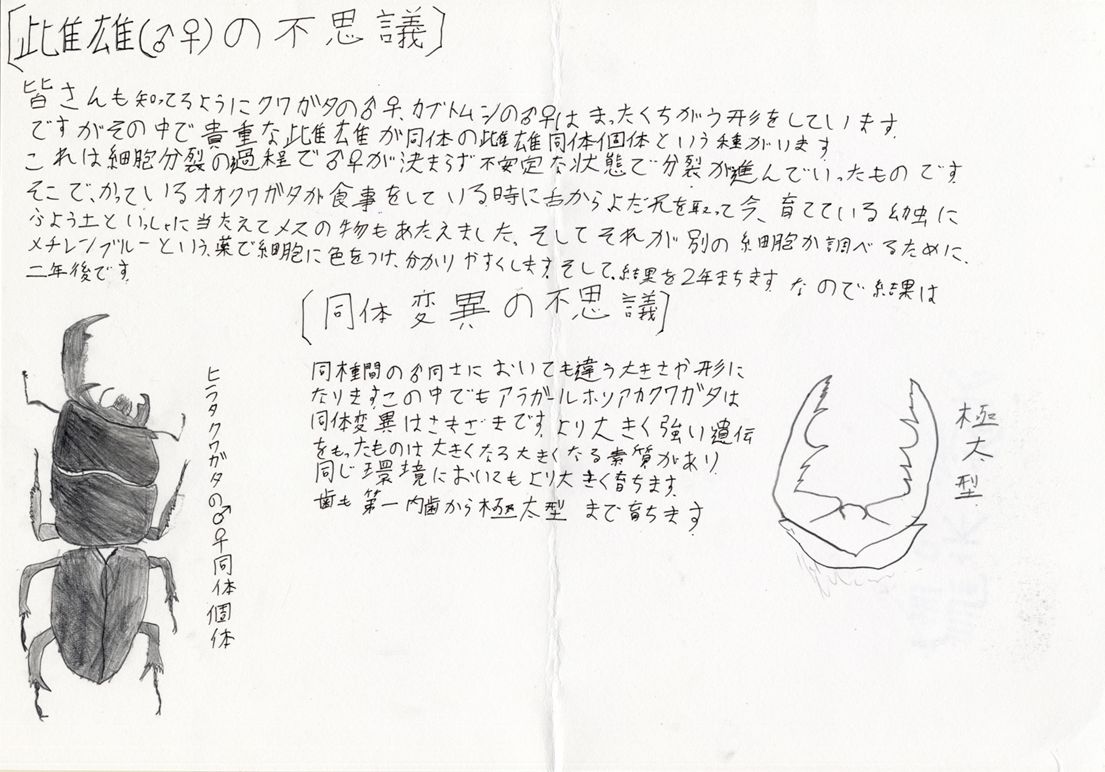 [雌雄(♂♀)の不思議]
皆さんも知ってるようにクワガタの♂♀、カブトムシの♂♀はまったくちがう形をしています。
ですがその中で貴重な雌雄が同体の雌雄同体個体という種がいます
これは細胞分裂の過程で♂♀が決まらず不安定な状態で分裂が進んでいったものです
そこで、かっているオオクワガタが食事をしている時に舌からよだ尻を取って今、育てている幼虫に
ふよう土といっしょに当たえてメスの物もあたえました、そしてそれが別の細胞か調べるために、
メチレンブルーという、薬で細胞に色をつけ、分かりやすくします。そして、結果を2年まちます なので結果は
二年後です。
[同体変異の不思議]
同種間の♂同士においても違う大きさや形に
なります。この中でもアラガールホソアカクワガタは
同体変異はさまざまです。より大きく強い遺伝
をもったものは大きくなる大きくなる素質があり
同じ環境においてもより大きく育ちます。
歯も第一内歯から極太型まで育ちます
ヒラタクワガタの♂♀同体個体
極太型